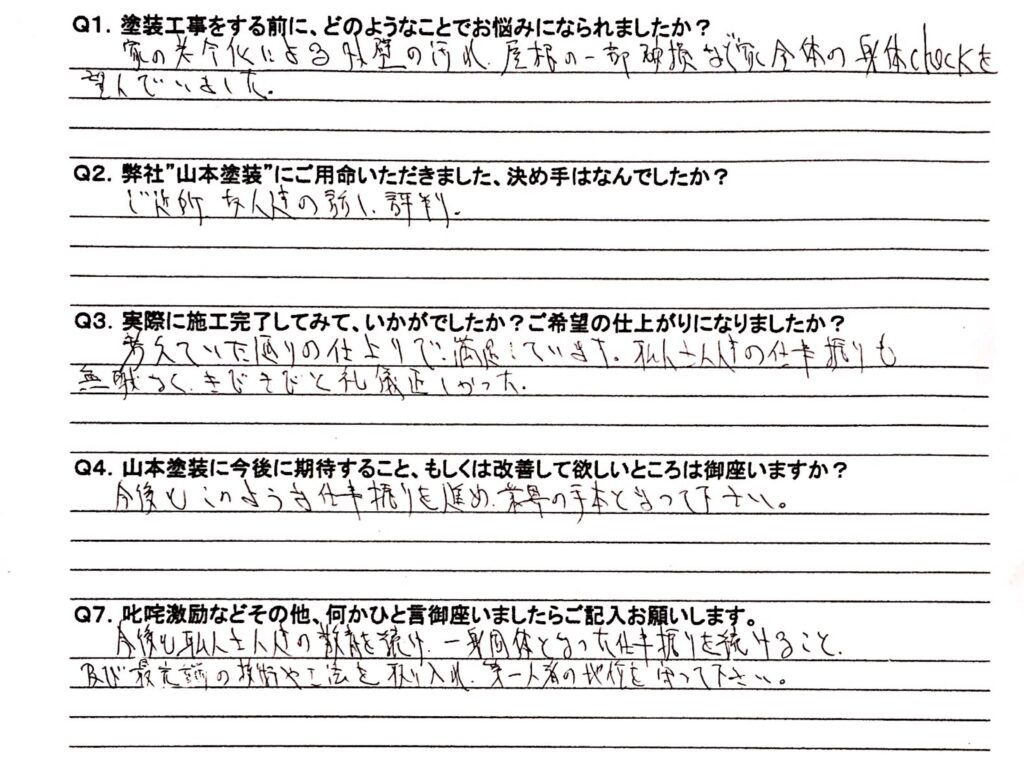 Q1. 塗装工事をする前に、どのようなことでお悩みになられましたか？
家の老令化による外壁の汚れ、屋根の一部破損など家全体の身体checkを
望んでいました。
Q2. 弊社”山本塗装”にご用命いただきました、決め手はなんでしたか？
ご近所 友人達の話し、評判。
Q3. 実際に施工完了してみて、いかがでしたか？ご希望の仕上がりになりましたか？
考えていた通りの仕上りで満足しています。職人さん達の仕事振りも
無駄なく、きびきびと礼儀正しかった。
Q4. 山本塗装に今後に期待すること、もしくは改善して欲しいところは御座いますか？
今後もこのような仕事振りを進め、業界の手本となって下さい。
Q7. 叱咤激励などその他、何かひと言御座いましたらご記入お願いします。
今後も職人さん達の教育を続け、一身同体となった仕事振りを続けること、
及び最先端の技術や工法を取り入れ、第一人者の地位を守って下さい。